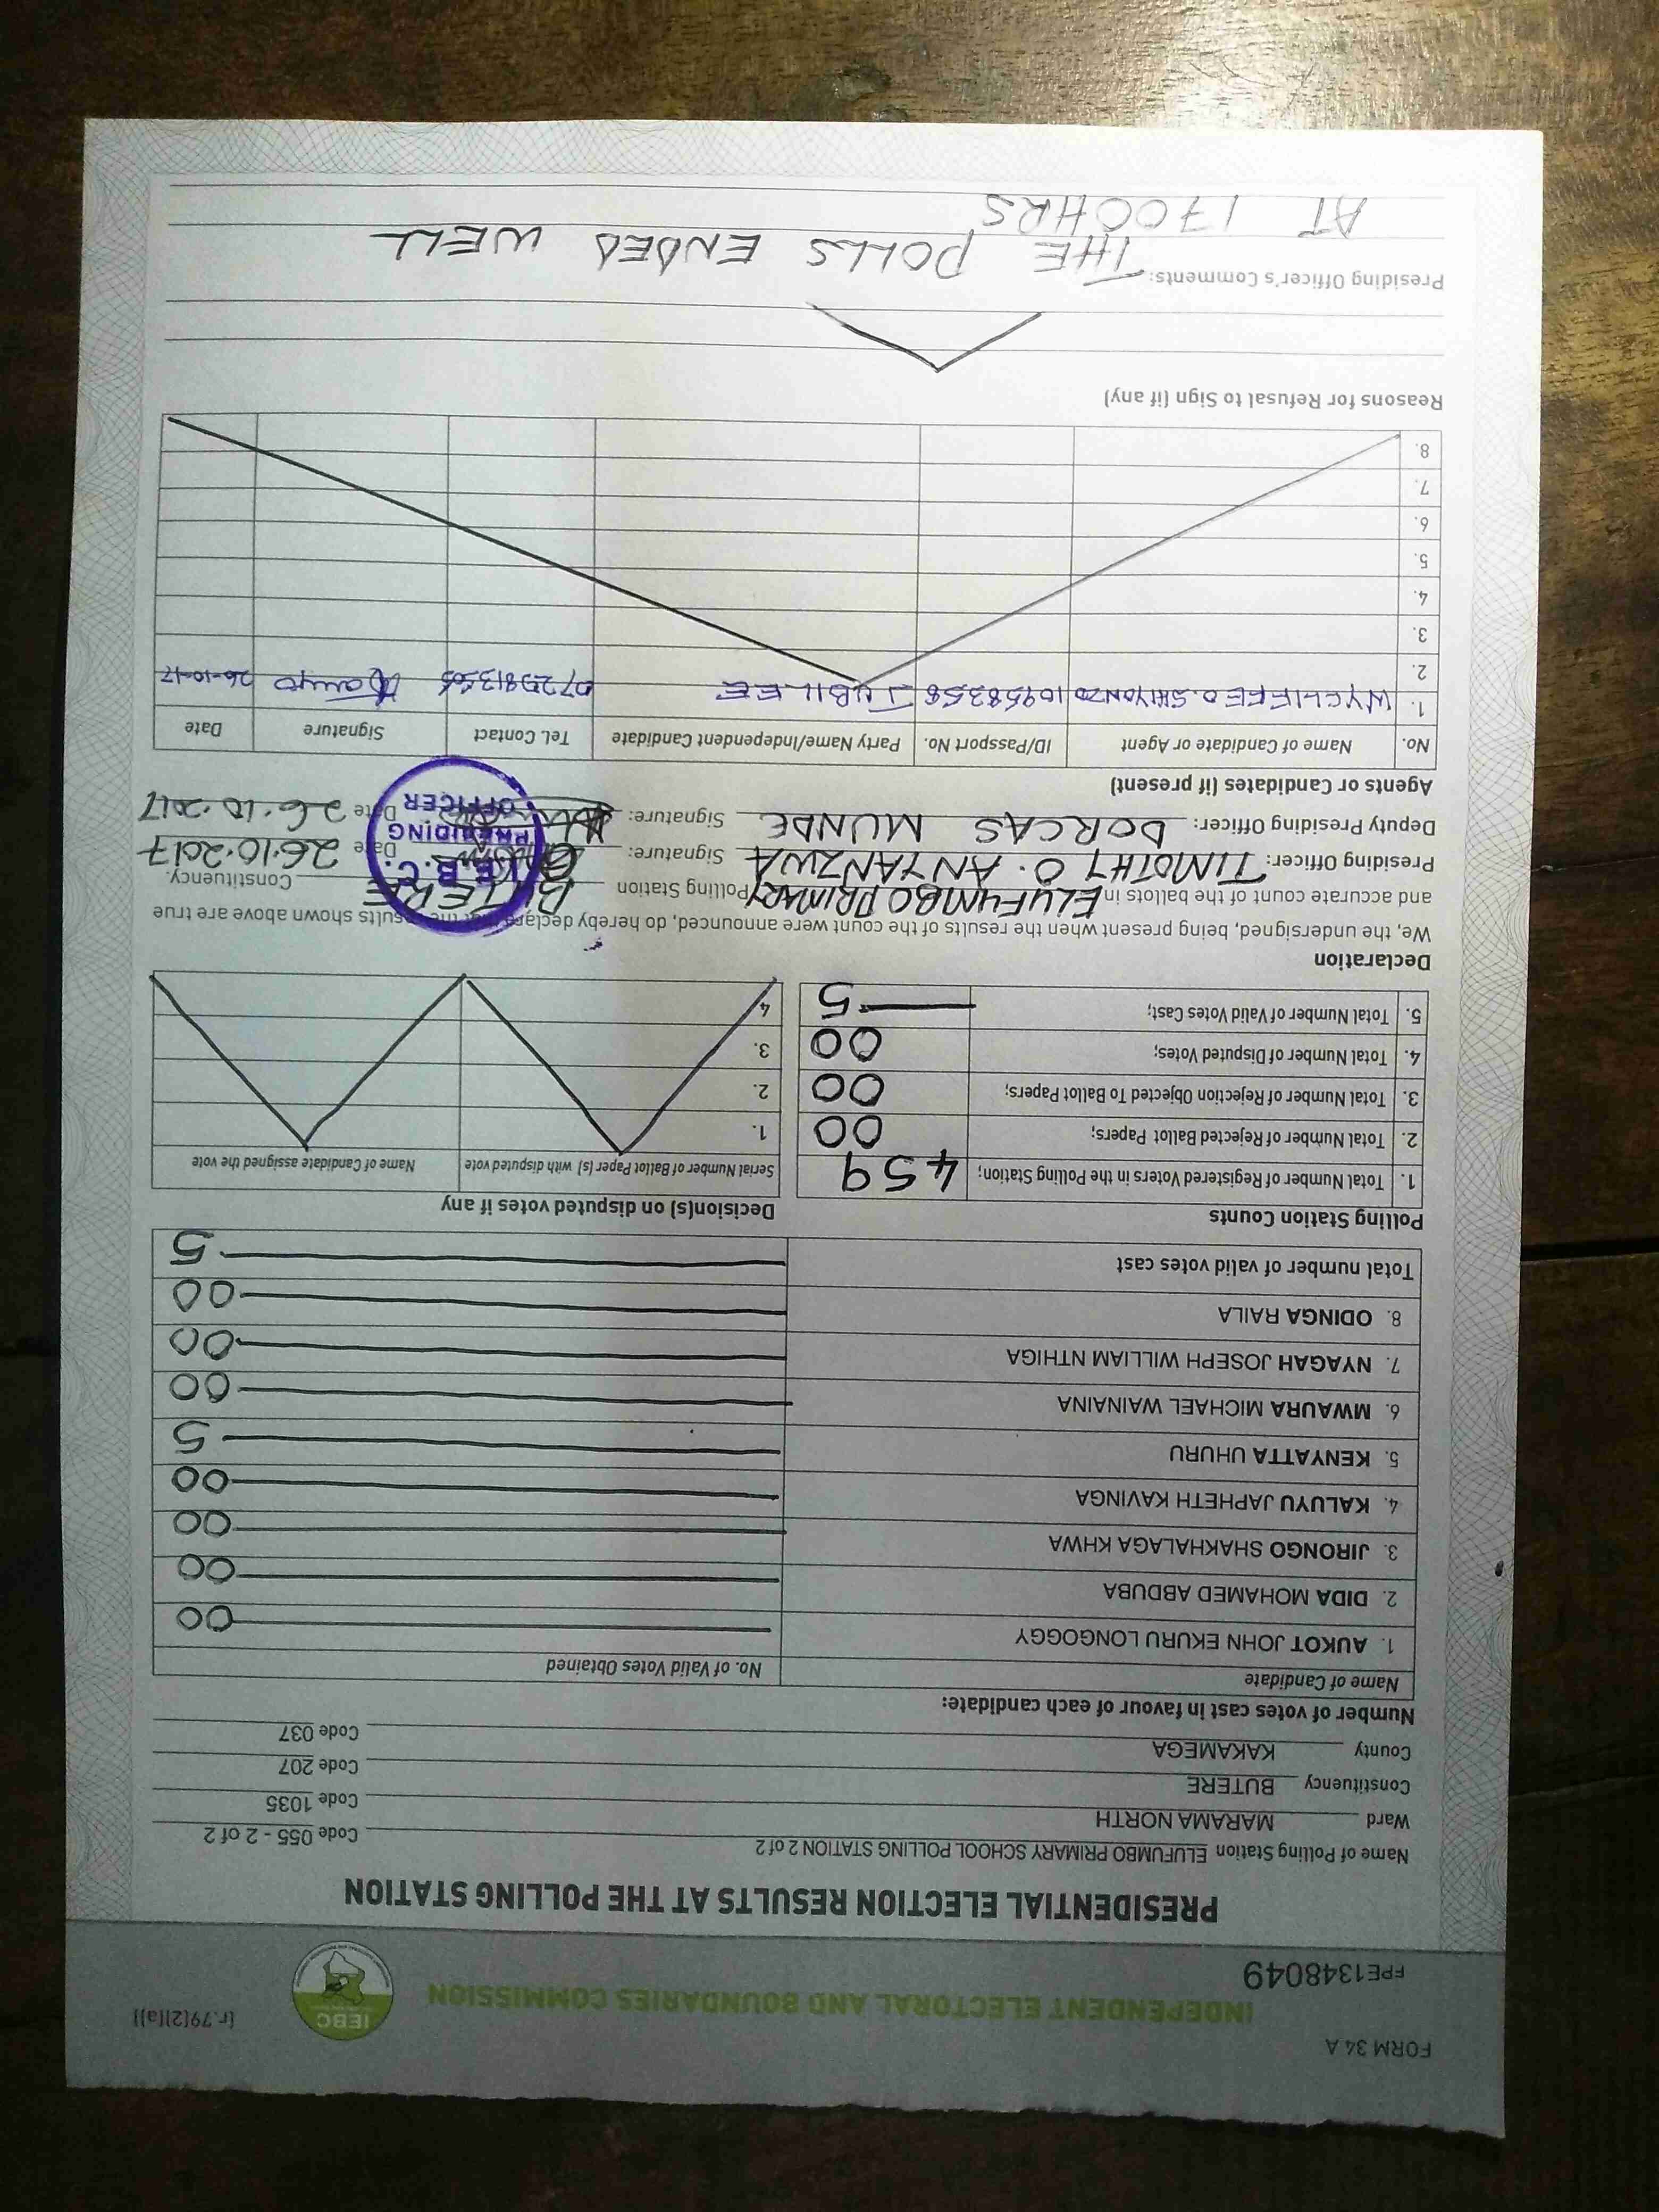 FORM 34 A
(r.79(2)(a))
INDEPENDENT ELECTORAL AND BOUNDARIES COMMISSION
IEBC
FPE1348049
PRESIDENTIAL ELECTION RESULTS AT THE POLLING STATION
Name of Polling Station ELUFUMBO PRIMARY SCHOOL POLLING STATION 2 of 2 Code 055 - 2 of 2
Ward MARAMA NORTH Code 1035
Constituency BUTERE Code 207
County KAKAMEGA Code 037
Number of votes cast in favour of each candidate:
Name of Candidate No. of Valid Votes Obtained
1. AUKOT JOHN EKURU LONGOGGY 00
2. DIDA MOHAMED ABDUBA 00
3. JIRONGO SHAKHALAGA KHWA 00
4. KALUYU JAPHETH KAVINGA 00
5. KENYATTA UHURU 5
6. MWAURA MICHAEL WAINAINA 00
7. NYAGAH JOSEPH WILLIAM NTHIGA 00
8. ODINGA RAILA 00
Total number of valid votes cast 5
Polling Station Counts
1. Total Number of Registered Voters in the Polling Station; 459
2. Total Number of Rejected Ballot Papers; 00
3. Total Number of Rejection Objected To Ballot Papers; 00
4. Total Number of Disputed Votes; 00
5. Total Number of Valid Votes Cast; 5
Decision(s) on disputed votes if any
Serial Number of Ballot Paper (s) with disputed vote Name of Candidate assigned the vote
1.
2.
3.
4
Declaration
We, the undersigned, being present when the results of the count were announced, do hereby declare that the results shown above are true
and accurate count of the ballots in ELUFUMBO PRIMARY Polling Station BUTERE Constituency.
Presiding Officer: TIMOTHY O. ANYANZWA Signature: Date 26.10.2017
Deputy Presiding Officer: DORCAS MUNDE Signature: Date 26.10.2017
I.E.B.C.
PRESIDING
OFFICER
Agents or Candidates (if present)
No. Name of Candidate or Agent ID/Passport No. Party Name/Independent Candidate Tel. Contact Signature Date
1. WYCLIFFE O. SHIYONZO 10958358 JUBILEE 26-10-17
2.
3.
4.
5.
6.
7.
8.
Reasons for Refusal to Sign (if any)
Presiding Officer's Comments: THE POLLS ENDED WELL
AT 1700HRS